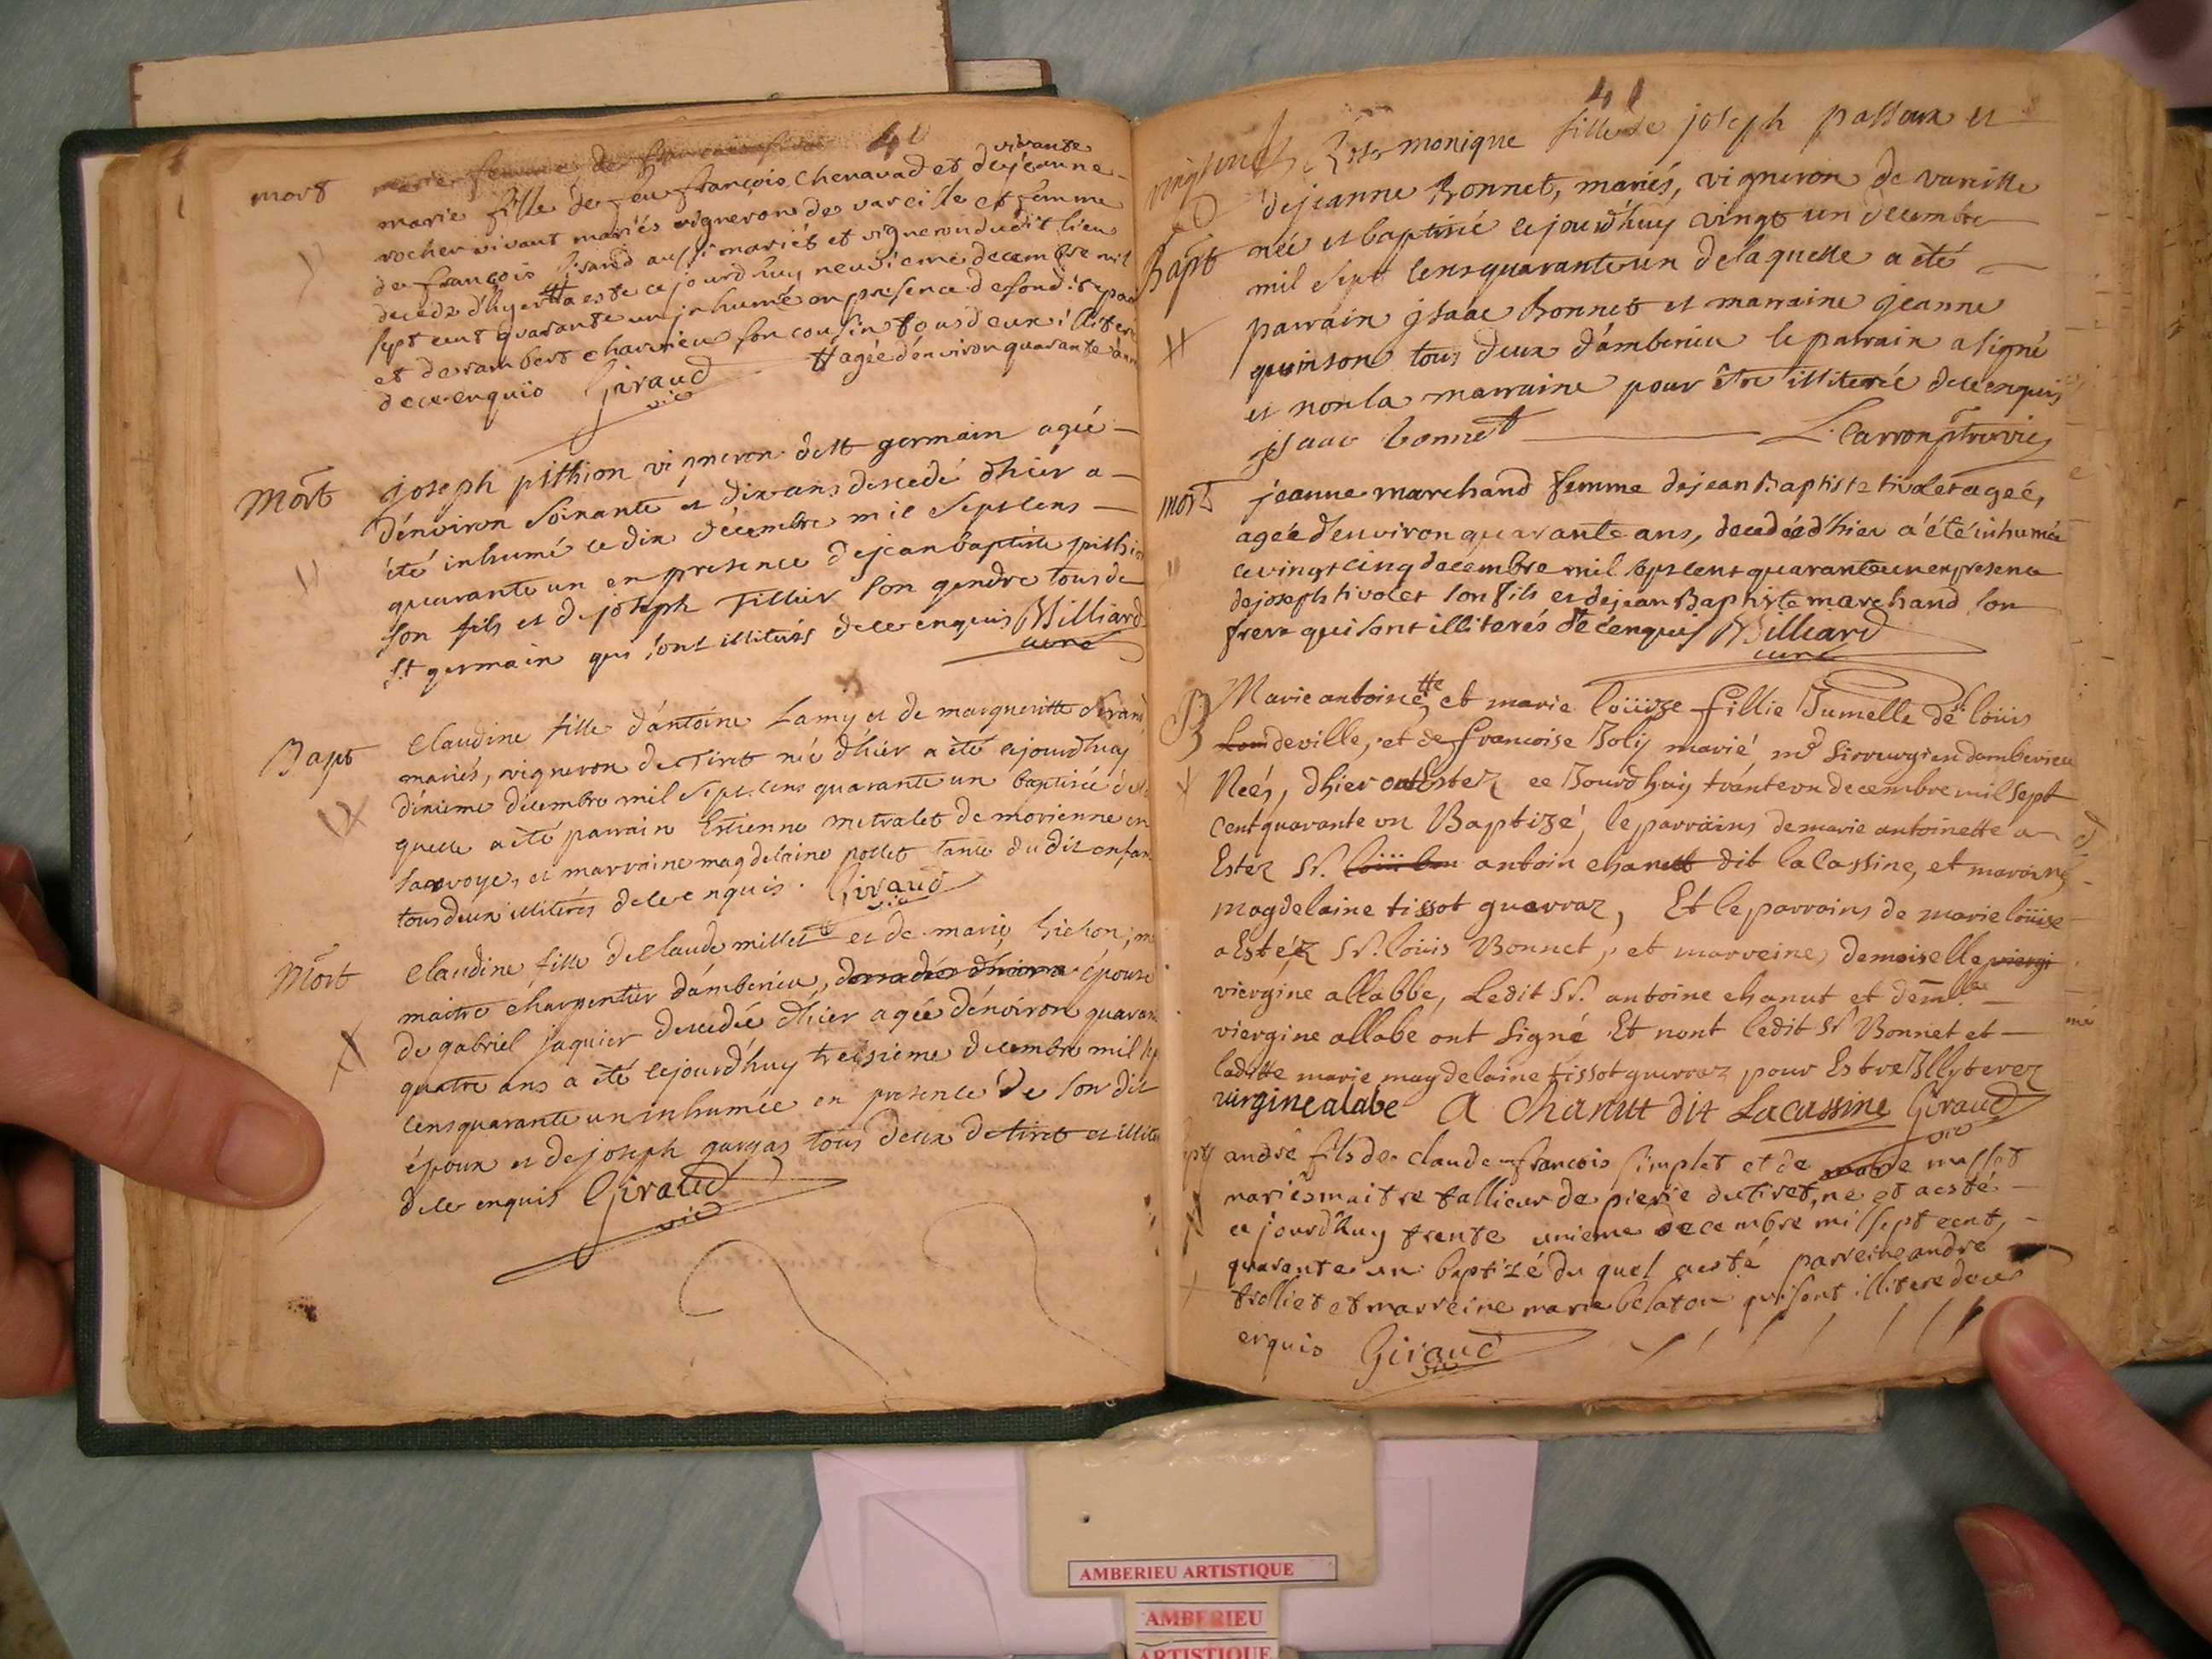 40
mort
vivante
marie fille de feu françois chenavad et de jeanne
rocher vivant mariés vigneron de vareille et femme
de françois aussi mariés et vigneron dudit lieu
decedé d'hyer # a este ce jourd'huy neuvieme decembre mil
sept cent quarante un inhumé en presence de
et de rambert charvieu son cousin tous deux
de ce enquis Giraud vic # agée d'environ quarante
Mort
joseph pithion vigneron de st germain agé
d'environ soixante et dix ans decedé d'hier a
été inhumé ce dix décembre mil sept cens
quarante un en presence de jean baptiste
son fils et de joseph Tillier son gendre tous de
st germain qui sont illiterés de ce enquis Milliard
curé
Bapt
Claudine fille d'antoine Lamy et de margueritte
mariés, vigneron de Tiret né d'hier a été ce jourd'huy
dixieme décembre mil sept cens quarante un baptisée
quelle a été parrain Estienne metralet de morienne en
savoye, et marraine magdelaine pollet tante du dit enfan
tous deux illiterés de ce enquis. Giraud
vic
Mort
Claudine fille de Claude millet et de marie
maitre charpentier d'amberieu, épouse
de gabriel jaquier decedée d'hier agée d'environ quaran
quatre ans a été ce jourd'huy treisieme decembre mil
cens quarante un inhumée en presence de son dit
époux et de joseph gargas tous deux de tiret et
de ce enquis Giraud
vic
41
Bapt
monique fille de joseph passoux et
de jeanne Bonnet, mariés, vigneron de vareille
née et baptisé ce jourd'huy vingt un decembre
mil sept cens quarante un de laquelle a été
parrain jsaac bonnet et marraine jeanne
quinson tous deux d'amberieu le parrain a signé
et non la marraine pour être illiterée de ce enquis
jsaac bonnet L. Carron
mort
jeanne marchand femme de jean Baptiste tivolet ageé,
ageé d'environ quarante ans, decedée d'hier a été inhumée
ce vingt cinq decembre mil sept cent quarante un en presence
de joseph tivolet son fils et de jean Baptiste marchand son
frere qui sont illiterés de ce enquis Milliard
curé
B
Marie antoinette et marie loüize fillie Jumelle de loüis
deville, et de francoise Joly marié, me sirrurgien damberieu
Neés, dhier ont Estez ce Jourdhuy trante un decembre mil sept
cent quarante un Baptizé, le parrains de marie antoinette a
Estéz Sr. antoin chanutt dit la cassine, et maraine
magdelaine tissot guerraz, Et le parrains de marie loüise
a Estéz Sr. loüis Bonnet, et marreine, demoiselle
viergine allabbe, Ledit Sr. antoine chanut et demlle
viergine allabe ont signé Et nont ledit Sr Bonnet et
laditte marie magdelaine tissot guerraz pour Estre Illyterez
virgine alabe A Chanutt dit Lacassine Giraud
vic
andré fils de claude francois simplet et de
mariés maitre tallieur de pierre du tiret, né et a esté
ce jourd'huy trente unieme decembre mil sept cent
quarante un baptizé du quel a esté parreine andré
trolliet et marreine marie belaton qui sont illitere de ce
enquis Giraud
vic
AMBERIEU ARTISTIQUE
AMBERIEU
ARTISTIQUE